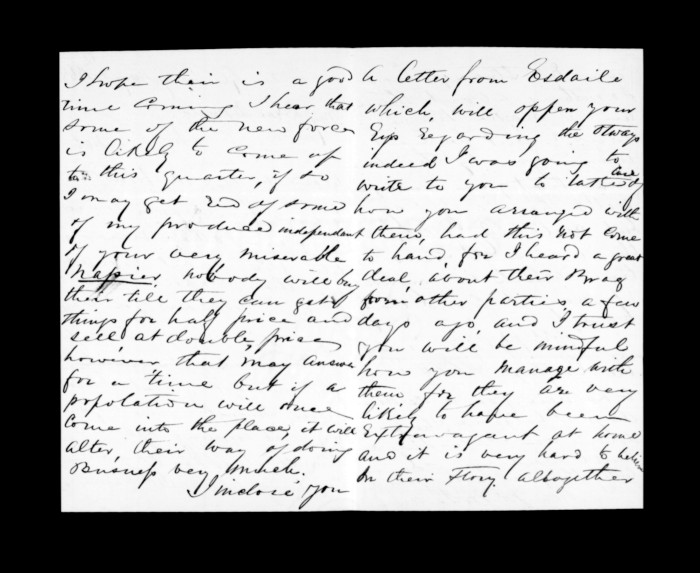 I hope their is a good
time coming I hear that
some of the new forces
is likely to come up
to this quarter, if so
I may get rid of some
of my produce independent
of your very miserable
Napier nobody will buy
their till they can get
things for half price and
sell at double prises
however that may answer
for a time but if a
popolation will once
Come into the place, it will
alter, their way of doing
Busness very much.
I inclose you
A letter from Esdaile
which, will oppen your
Eys regarding the
indeed I was going to
write to you to take care
how you arranged with
them, had this not Come
to hand, for I heard a great
deal, about their Brag
from other parties a few
days ago, and I trust
you will be mindful
how you manage with
them for they are very
likely to have been
Extravagant at home
and it is very hard to believe
in their story altogether